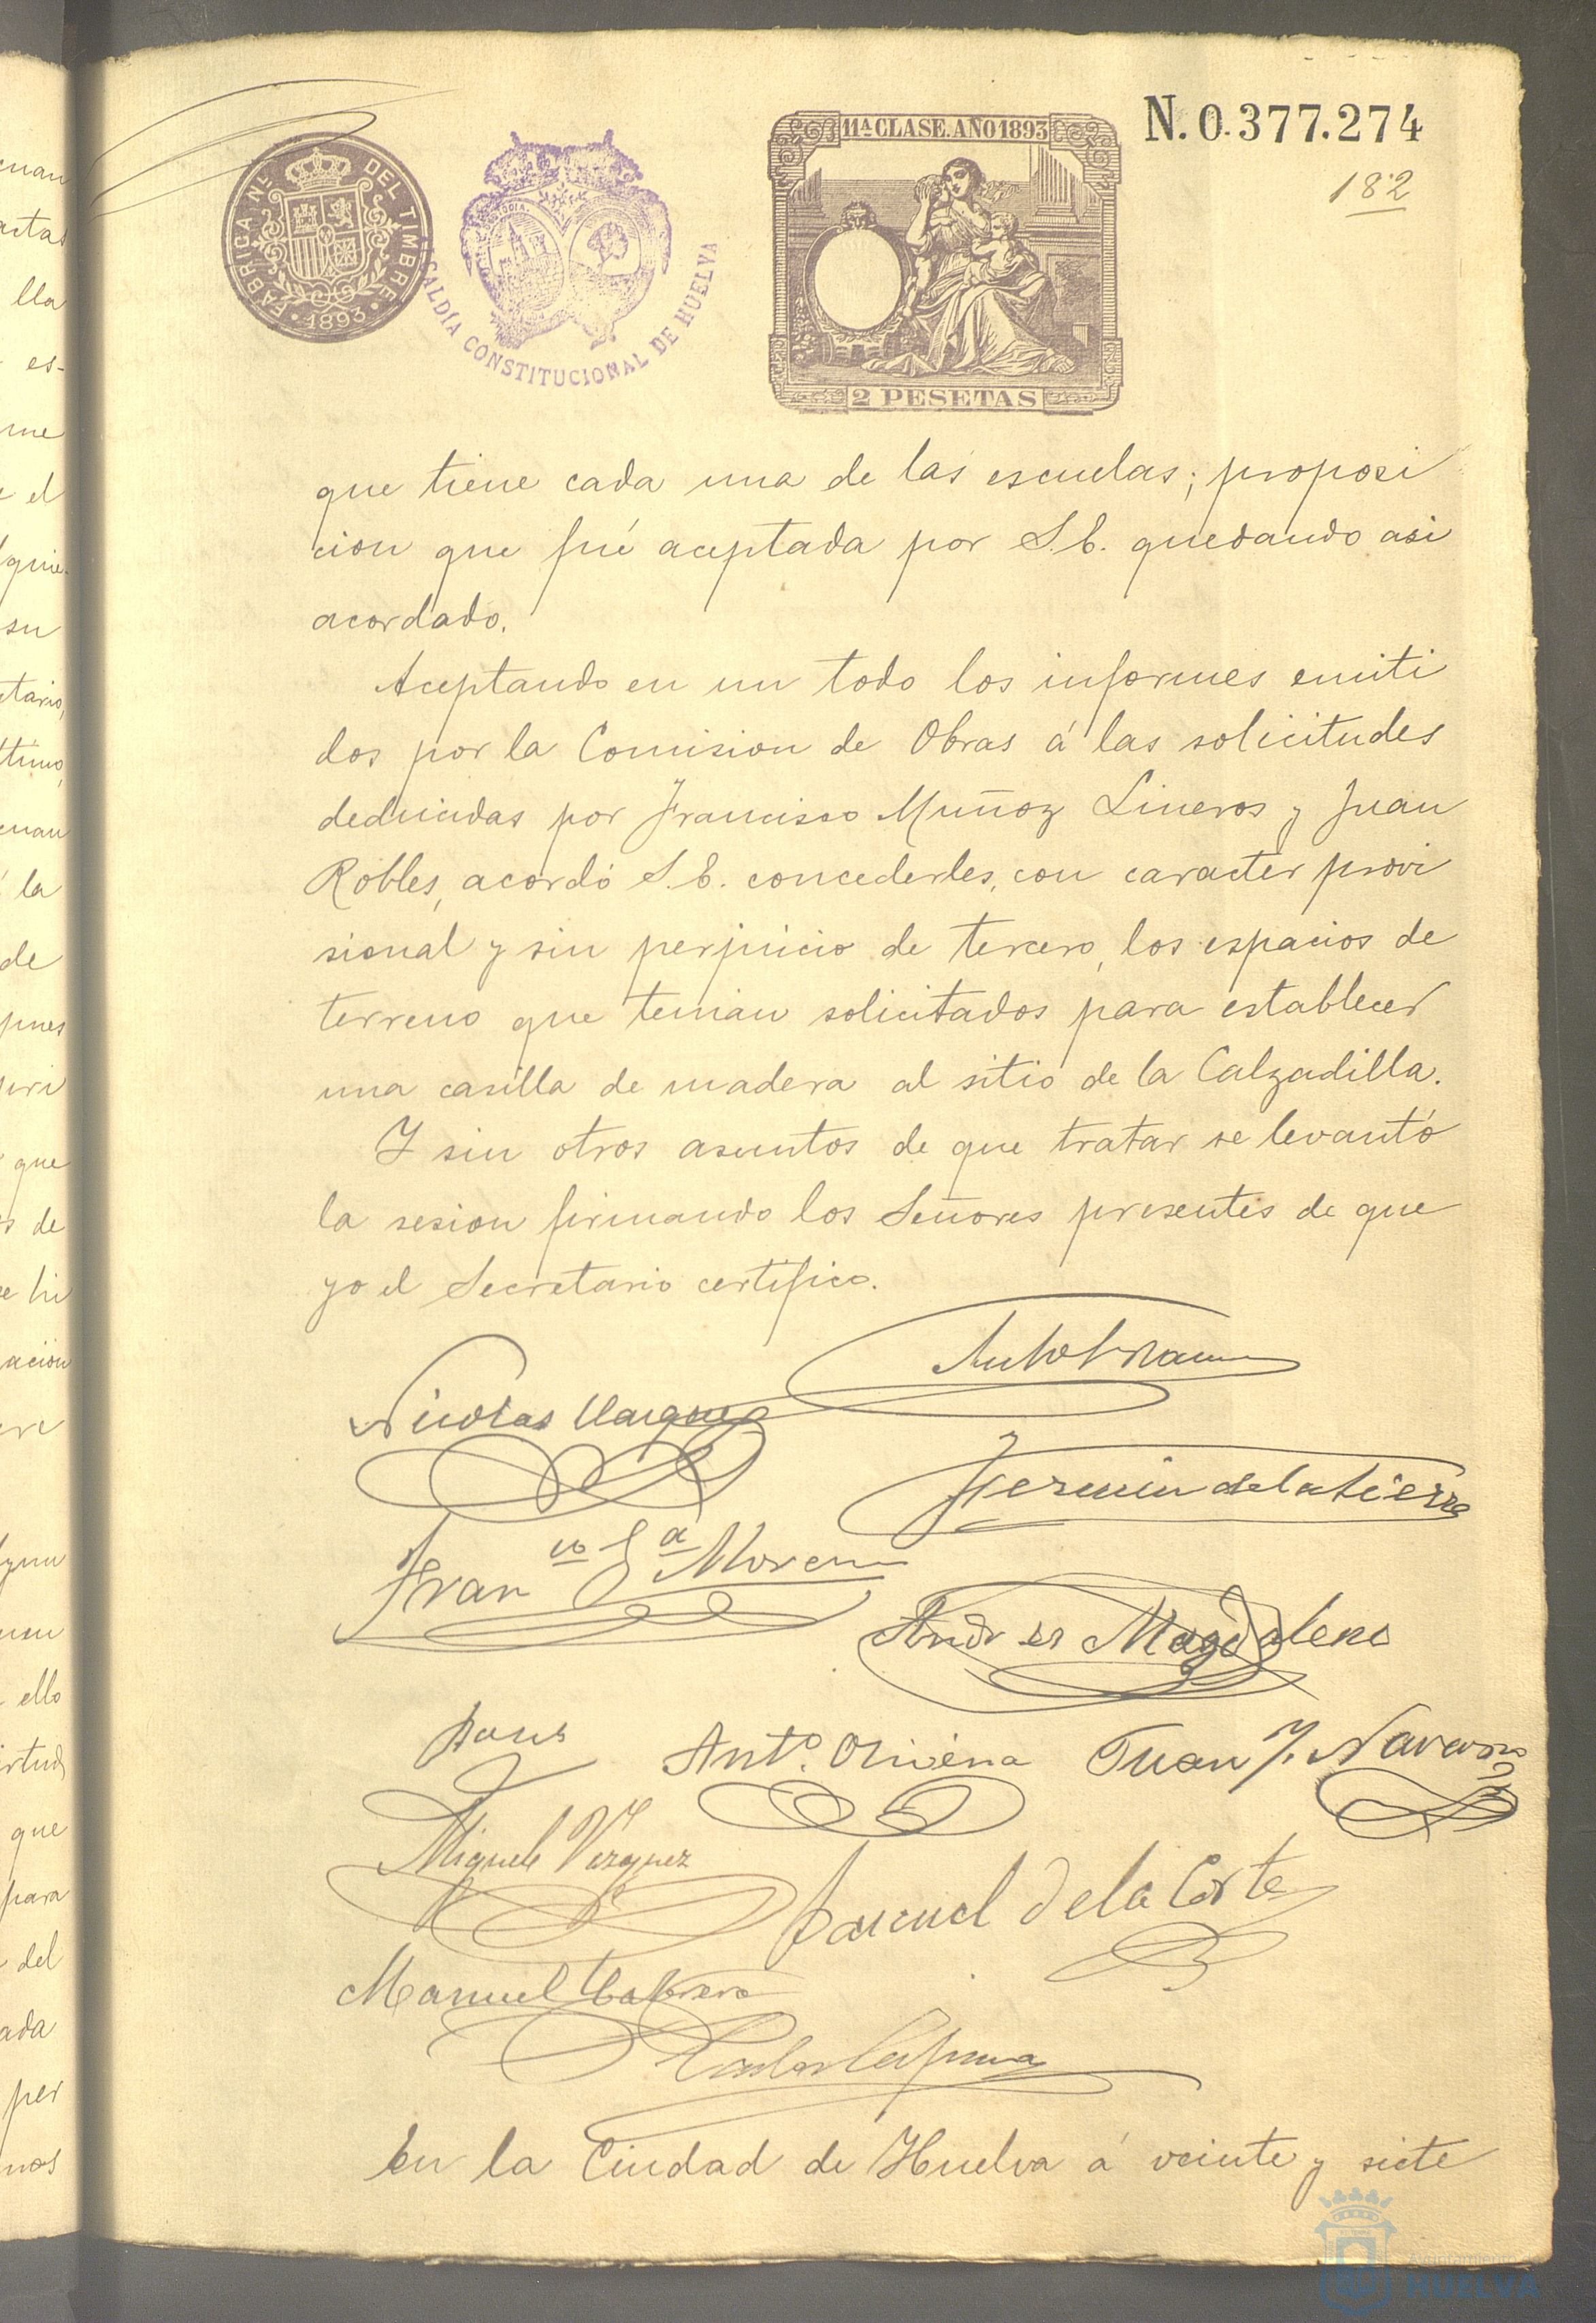 N. 0.377.274
182
FABRICA NL. DEL TIMBRE
1893
ALCALDÍA CONSTITUCIONAL DE HUELVA
11ª CLASE. AÑO 1893
2 PESETAS
que tiene cada una de las escuelas; proposi
cion que fué aceptada por S.E. quedando asi
acordado.
Aceptando en un todo los informes emiti
dos por la Comision de Obras á las solicitudes
deducidas por Francisco Muñoz Lineros y Juan
Robles, acordó S.E. concederles, con caracter provi
sional y sin perjuicio de tercero, los espacios de
terreno que tenian solicitados para establecer
una casilla de madera al sitio de la Calzadilla.
Y sin otros asuntos de que tratar se levantó
la sesion firmando los Señores presentes de que
yo el Secretario certifico.
Nicolas Vazquez
Fermin de la Sierra
Franco Ga Moreno
Andres Magdaleno
Anto. Olivéna Juan J. Navarro
Miguel Vazquez
Manuel de la Corte
Manuel Cabrera
En la Ciudad de Huelva á veinte y siete
Ayuntamiento
HUELVA